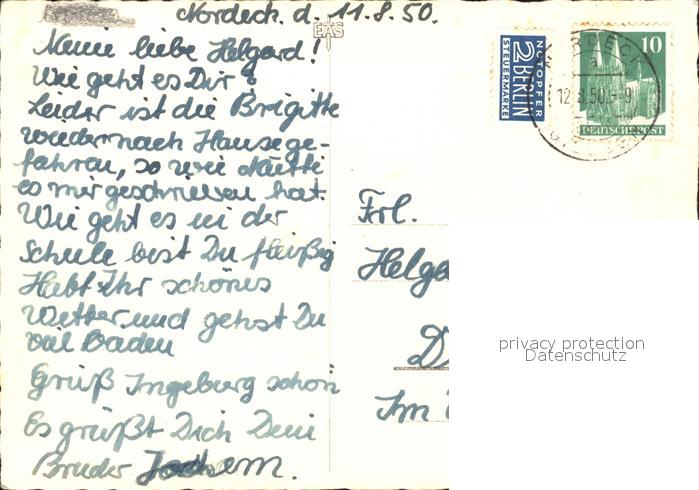 Nordeck. d. 11.8.50.
Meine liebe Helgard!
Wie geht es Dir?
Leider ist die Brigitte
wieder nach Hause ge-
fahren, so wie Mutti
es mir geschrieben hat.
Wie geht es in der
Schule bist Du fleißig
Habt Ihr schönes
Wetter und gehst Du
viel Baden
Grüß Ingeburg schön
Es grüßt Dich Dein
Bruder Jochem.
EAS
NOTOPFER
2 BERLIN
STEUERMARKE
10
DEUTSCHE POST
NORDECK
a
12.8.50.
Frl.
Helg
D
Im
privacy protection
Datenschutz